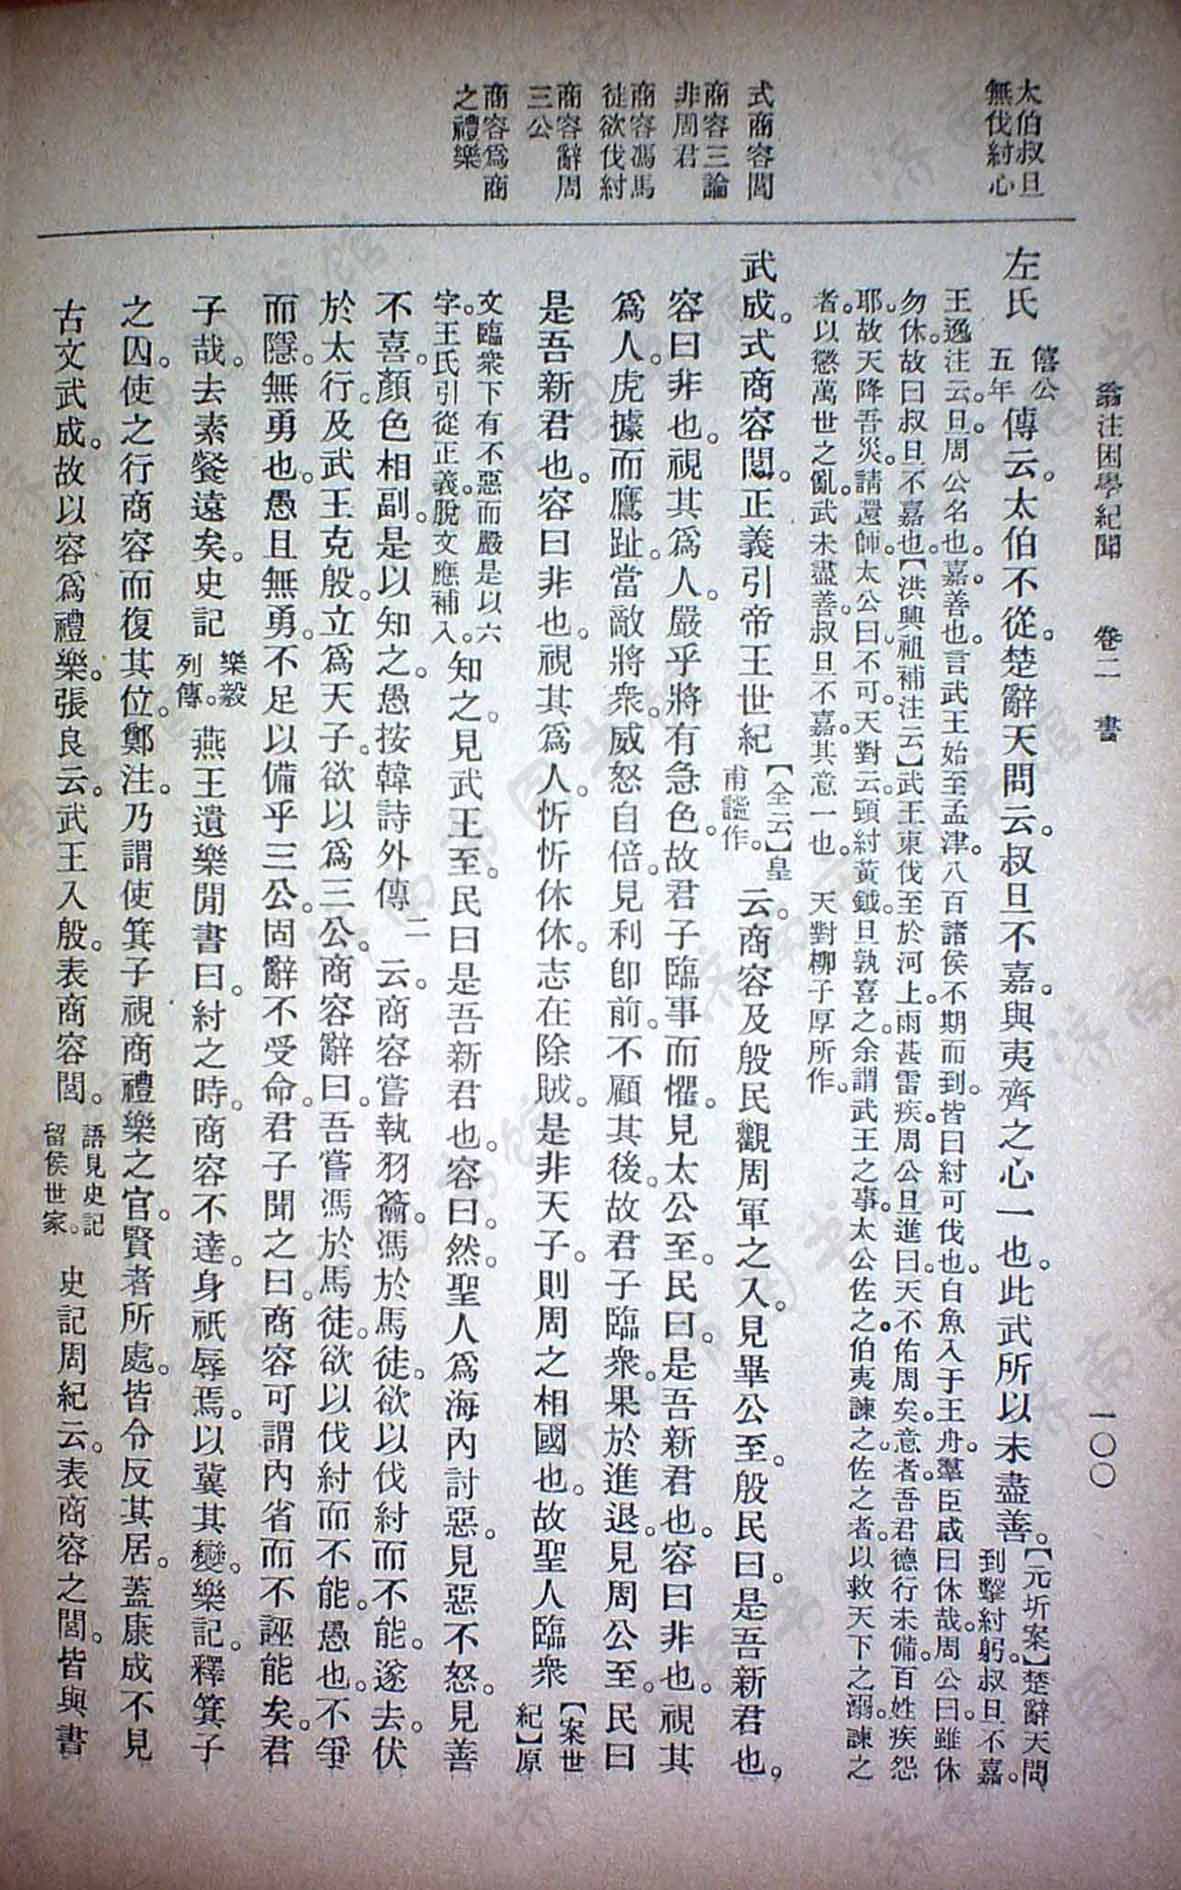 翁注困學紀聞　卷二　書　一〇〇
太伯叔旦
無伐紂心
式商容閭
商容三論
非周君
商容馮馬
徒欲伐紂
商容辭周
三公
商容爲商
之禮樂
左氏僖公五年傳云。太伯不從。楚辭天問云。叔旦不嘉。與夷齊之心一也。此武所以未盡善。【元圻案】楚辭天問
到擊紂躬。叔旦不嘉。
王逸注云。旦。周公名也。嘉。善也。言武王始至孟津。八百諸侯不期而到。皆曰紂可伐也。白魚入于王舟。羣臣咸曰休哉。周公曰。雖休
勿休。故曰叔旦不嘉也。【洪興祖補注云】武王東伐至於河上。雨甚雷疾。周公旦進曰。天不佑周矣。意者吾君德行未備。百姓疾怨
耶。故天降吾災。請還師。太公曰。不可。天對云。頸紂黃鉞。旦孰喜之。余謂武王之事。太公佐之。伯夷諫之。佐之者。以救天下之溺。諫之
者。以懲萬世之亂。武未盡善。叔旦不嘉。其意一也。　天對柳子厚所作。
武成。式商容閭。正義引帝王世紀【全云】皇甫謐作。云。商容及殷民觀周軍之入。見畢公至。殷民曰。是吾新君也。
容曰。非也。視其爲人。嚴乎將有急色。故君子臨事而懼。見太公至。民曰。是吾新君也。容曰。非也。視其
爲人。虎據而鷹趾。當敵將衆。威怒自倍。見利卽前。不顧其後。故君子臨衆。果於進退。見周公至。民曰
是吾新君也。容曰。非也。視其爲人。忻忻休休。志在除賊。是非天子。則周之相國也。故聖人臨衆【案世紀】原
文臨衆下有不惡而嚴是以六
字。王氏引從正義。脫文應補入。知之。見武王至。民曰。是吾新君也。容曰。然。聖人爲海內討惡。見惡不怒。見善
不喜。顏色相副。是以知之。愚按韓詩外傳二云。商容嘗執羽籥。馮於馬徒。欲以伐紂而不能。遂去。伏
於太行。及武王克殷。立爲天子。欲以爲三公。商容辭曰。吾嘗馮於馬徒。欲以伐紂而不能。愚也。不爭
而隱。無勇也。愚且無勇。不足以備乎三公。固辭不受命。君子聞之曰。商容可謂內省而不誣能矣。君
子哉。去素餐遠矣。史記樂毅列傳。燕王遺樂閒書曰。紂之時。商容不達。身祇辱焉。以冀其變。樂記。釋箕子
之囚。使之行商容而復其位。鄭注。乃謂使箕子視商禮樂之官。賢者所處。皆令反其居。蓋康成不見
古文武成。故以容爲禮樂。張良云。武王入殷。表商容閭。語見史記留侯世家。史記周紀云。表商容之閭。皆與書